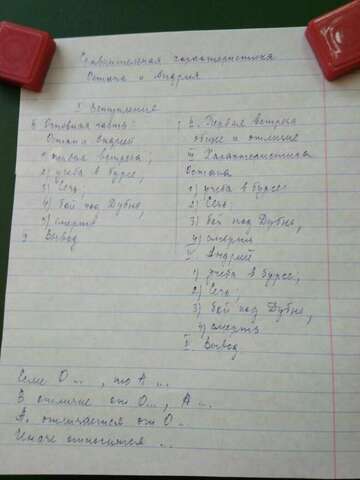 Сравнительная характеристика
Остапа и Андрия
I Вступление
II Основная часть:
Остап и Андрей
1) первая встреча;
2) учеба в бурсе,
3) Сечь;
4) бой под Дубно,
5) смерть
Вывод
II. Первая встреча
общее и отличие
III Характеристика
Остапа
1) учеба в бурсе;
2) Сечь;
3) бой под Дубно,
4) смерть
IV Андрей
1) учеба в бурсе;
2) Сечь;
3) бой под Дубно,
4) смерть
V Вывод
Если О... , то А ...
В отличие от О..., А ...
А. отличается от О...
Иначе относится ...